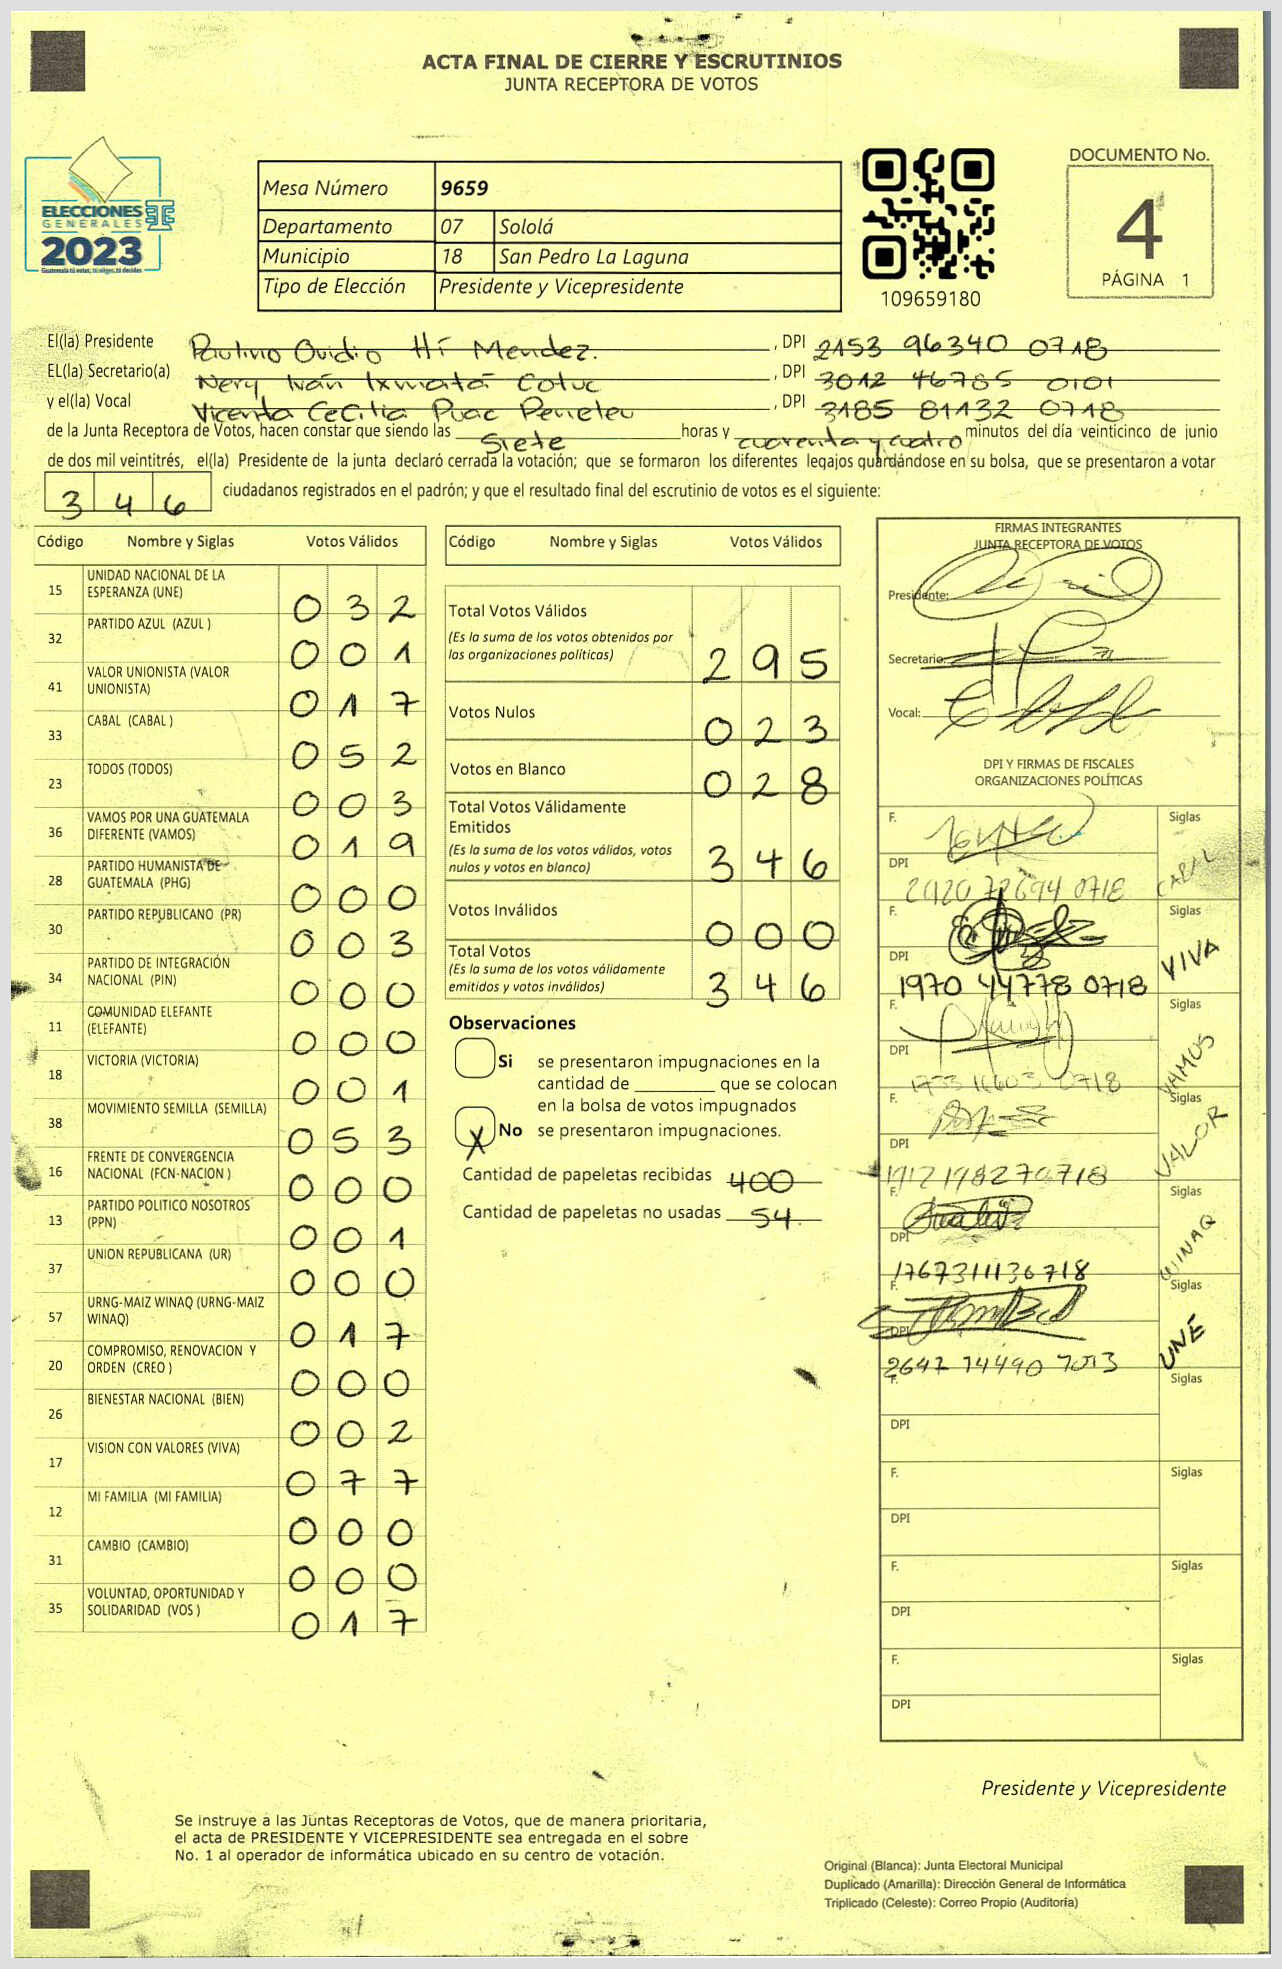 ACTA FINAL DE CIERRE Y ESCRUTINIOS
JUNTA RECEPTORA DE VOTOS
ELECCIONES
GENERALES
2023
Guatemala tú votas, tú eliges, tú decides
Mesa Número 9659
Departamento 07 Sololá
Municipio 18 San Pedro La Laguna
Tipo de Elección Presidente y Vicepresidente
109659180
DOCUMENTO No.
4
PÁGINA 1
El(la) Presidente Paulino Ovidio Hí Mendez. , DPI 2153 96340 0718
EL(la) Secretario(a) Nery Iván Ixmatá Cotuc , DPI 3012 46785 0101
y el(la) Vocal Vicenta CeCilia Puac , DPI 3185 81132 0718
de la Junta Receptora de Votos, hacen constar que siendo las siete horas y cuarenta y cuatro minutos del día veinticinco de junio
de dos mil veintitrés, el(la) Presidente de la junta declaró cerrada la votación; que se formaron los diferentes legajos guardándose en su bolsa, que se presentaron a votar
346 ciudadanos registrados en el padrón; y que el resultado final del escrutinio de votos es el siguiente:
Código Nombre y Siglas Votos Válidos
15 UNIDAD NACIONAL DE LA ESPERANZA (UNE) 032
32 PARTIDO AZUL (AZUL ) 001
41 VALOR UNIONISTA (VALOR UNIONISTA) 017
33 CABAL (CABAL ) 052
23 TODOS (TODOS) 003
36 VAMOS POR UNA GUATEMALA DIFERENTE (VAMOS) 019
28 PARTIDO HUMANISTA DE GUATEMALA (PHG) 000
30 PARTIDO REPUBLICANO (PR) 003
34 PARTIDO DE INTEGRACIÓN NACIONAL (PIN) 000
11 COMUNIDAD ELEFANTE (ELEFANTE) 000
18 VICTORIA (VICTORIA) 001
38 MOVIMIENTO SEMILLA (SEMILLA) 053
16 FRENTE DE CONVERGENCIA NACIONAL (FCN-NACION ) 000
13 PARTIDO POLITICO NOSOTROS (PPN) 001
37 UNION REPUBLICANA (UR) 000
57 URNG-MAIZ WINAQ (URNG-MAIZ WINAQ) 017
20 COMPROMISO, RENOVACION Y ORDEN (CREO ) 000
26 BIENESTAR NACIONAL (BIEN) 002
17 VISION CON VALORES (VIVA) 077
12 MI FAMILIA (MI FAMILIA) 000
31 CAMBIO (CAMBIO) 000
35 VOLUNTAD, OPORTUNIDAD Y SOLIDARIDAD (VOS ) 017
Código Nombre y Siglas Votos Válidos
Total Votos Válidos
(Es la suma de los votos obtenidos por
las organizaciones políticas) 295
Votos Nulos 023
Votos en Blanco 028
Total Votos Válidamente
Emitidos
(Es la suma de los votos válidos, votos
nulos y votos en blanco) 346
Votos Inválidos 000
Total Votos
(Es la suma de los votos válidamente
emitidos y votos inválidos) 346
Observaciones
Si se presentaron impugnaciones en la
cantidad de ________ que se colocan
en la bolsa de votos impugnados
X No se presentaron impugnaciones.
Cantidad de papeletas recibidas 400
Cantidad de papeletas no usadas 54.
FIRMAS INTEGRANTES
JUNTA RECEPTORA DE VOTOS
Presidente:
Secretario:
Vocal:
DPI Y FIRMAS DE FISCALES
ORGANIZACIONES POLÍTICAS
F. Siglas
DPI 2920 72694 0718
F. Siglas
DPI 1970 44778 0718 VIVA
F. Siglas
DPI 0718 VAMOS
F. Siglas
DPI 1912198270718 VALOR
F. Siglas
DPI 1767311130718 WINAQ
F. Siglas
DPI 2647 74490 UNE
F. Siglas
DPI
F. Siglas
DPI
F. Siglas
DPI
F. Siglas
DPI
Presidente y Vicepresidente
Se instruye a las Juntas Receptoras de Votos, que de manera prioritaria,
el acta de PRESIDENTE Y VICEPRESIDENTE sea entregada en el sobre
No. 1 al operador de informática ubicado en su centro de votación.
Original (Blanca): Junta Electoral Municipal
Duplicado (Amarilla): Dirección General de Informática
Triplicado (Celeste): Correo Propio (Auditoría)